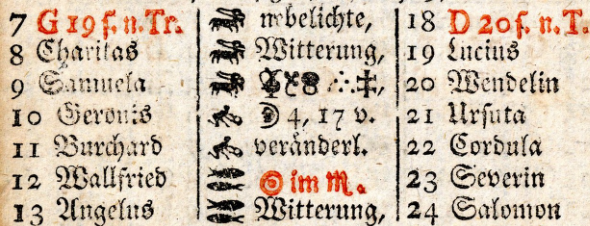 7 G 19 ſ. n. Tr. nebelichte, 18 D 20 ſ. n. T.
8 Charitas Witterung, 19 Lucius
9 Samuela 20 Wendelin
10 Geronis ☽ 4, 17 v. 21 Urſula
11 Burchard veränderl. 22 Cordula
12 Wallfried ☉ im ♏. 23 Severin
13 Angelus Witterung, 24 Salomon